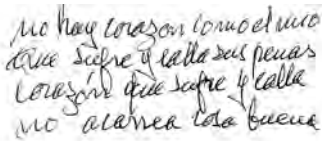 no hay corazon como el mio
que sufre y calla sus penas
corazón que sufre y calla
no alcansa cosa buena